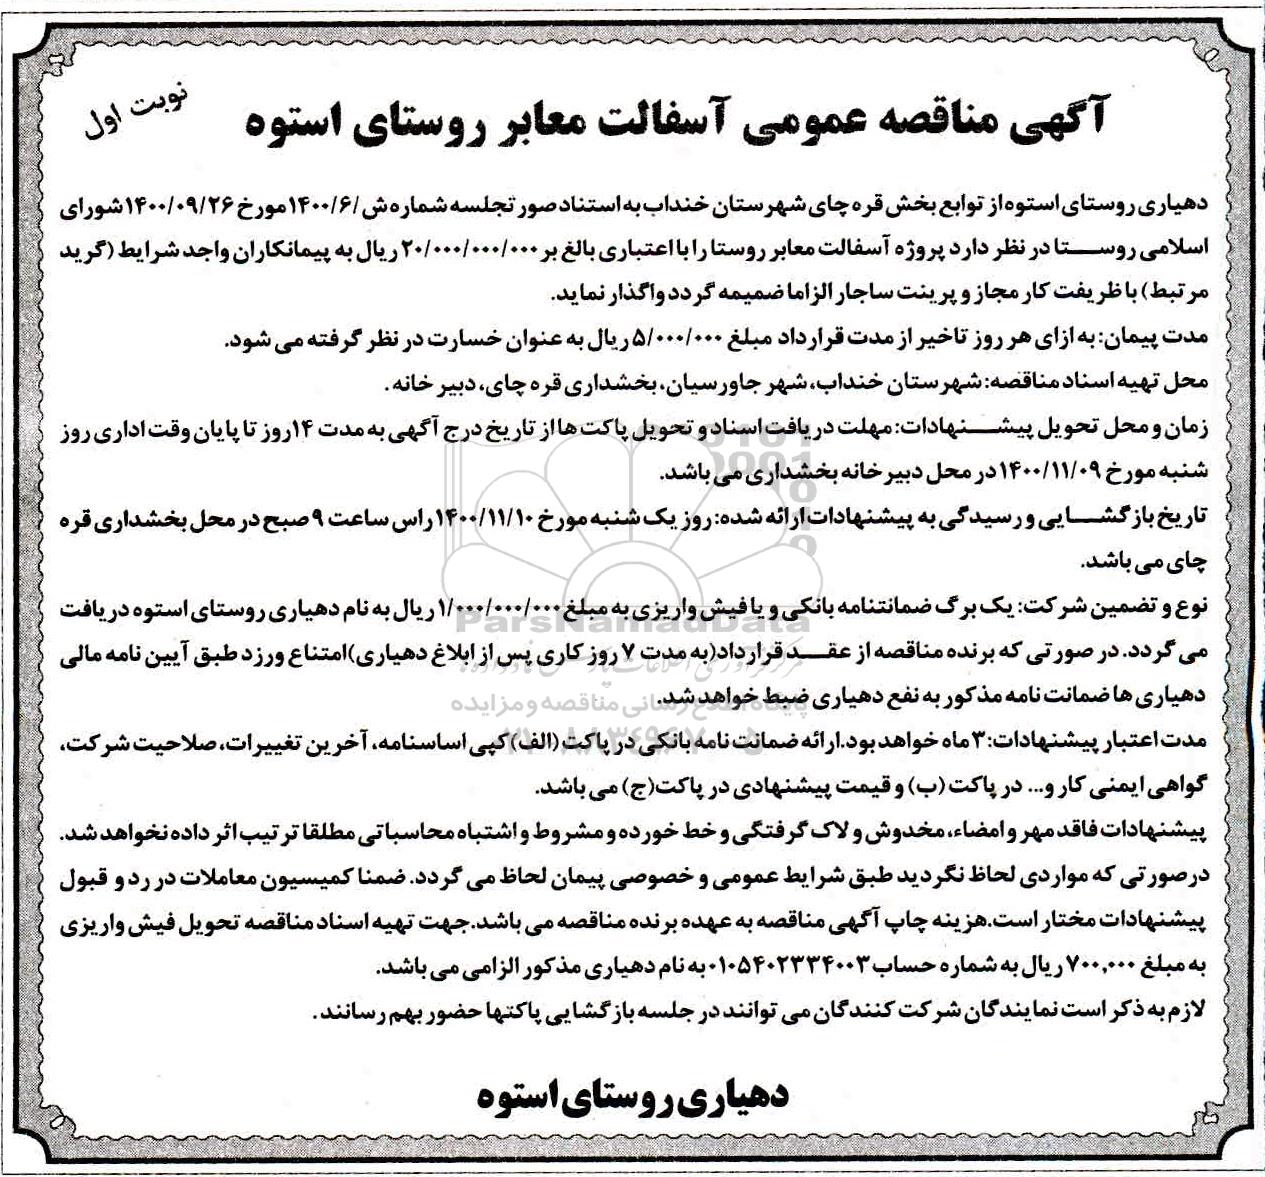 آگهی مناقصه عمومی آسفالت معابر روستای استوه
نوبت اول
دهیاری روستای استوه از توابع بخش قره چای شهرستان خنداب به استناد صورتجلسه شماره ش/۱۴۰۰/۶مورخ ۱۴۰۰/۰۹/۲۶شورای
اسلامی روستا در نظر دارد پروژه آسفالت معابر روستا را با اعتباری بالغ بر ۲۰/۰۰۰/۰۰۰/۰۰۰ ریال به پیمانکاران واجد شرایط (گرید
مرتبط) با ظریفت کار مجاز و پرینت ساجار الزاما ضمیمه گردد واگذار نماید.
مدت پیمان: به ازای هر روز تاخیر از مدت قرارداد مبلغ ۵/۰۰۰/۰۰۰ ریال به عنوان خسارت در نظر گرفته می شود.
محل تهیه اسناد مناقصه: شهرستان خنداب، شهر جاورسیان، بخشداری قره چای، دبیر خانه .
زمان و محل تحویل پیشنهادات: مهلت دریافت اسناد و تحویل پاکت ها از تاریخ درج آگهی به مدت ۱۴روز تا پایان وقت اداری روز
شنبه مورخ ۱۴۰۰/۱۱/۰۹ در محل دبیرخانه بخشداری می باشد.
تاریخ بازگشایی و رسیدگی به پیشنهادات ارائه شده: روز یک شنبه مورخ ۱۴۰۰/۱۱/۱۰راس ساعت ۹ صبح در محل بخشداری قره
چای می باشد.
نوع و تضمین شرکت: یک برگ ضمانتنامه بانکی و یا فیش واریزی به مبلغ ۱/۰۰۰/۰۰۰/۰۰۰ ریال به نام دهیاری روستای استوه دریافت
ParsNamadData
می گردد. در صورتی که برنده مناقصه از عقد قرارداد(به مدت ۷ روز کاری پس از ابلاغ دهیاری)امتناع ورزد طبق آیین نامه مالی
دهیاری ها ضمانت نامه مذکور به نفع دهیاری ضبط خواهد شد.
پایگاه اطلاع رسانی مناقصه و مزایده
مدت اعتبار پیشنهادات: ۳ ماه خواهد بود.ارائه ضمانت نامه بانکی در پاکت (الف)کپی اساسنامه، آخرین تغییرات، صلاحیت شرکت،
گواهی ایمنی کار و... در پاکت (ب) و قیمت پیشنهادی در پاکت(ج) می باشد.
پیشنهادات فاقد مهر و امضاء، مخدوش و لاک گرفتگی و خط خورده و مشروط و اشتباه محاسباتی مطلقا ترتیب اثر داده نخواهد شد.
درصورتی که مواردی لحاظ نگردید طبق شرایط عمومی و خصوصی پیمان لحاظ می گردد. ضمنا کمیسیون معاملات در رد و قبول
پیشنهادات مختار است.هزینه چاپ آگهی مناقصه به عهده برنده مناقصه می باشد.جهت تهیه اسناد مناقصه تحویل فیش واریزی
به مبلغ ۷۰۰,۰۰۰ ریال به شماره حساب ۰۱۰۵۴۰۲۳۳۴۰۰۳به نام دهیاری مذکور الزامی می باشد.
لازم به ذکر است نمایندگان شرکت کنندگان می توانند در جلسه بازگشایی پاکتها حضور بهم رسانند .
دهیاری روستای استوه